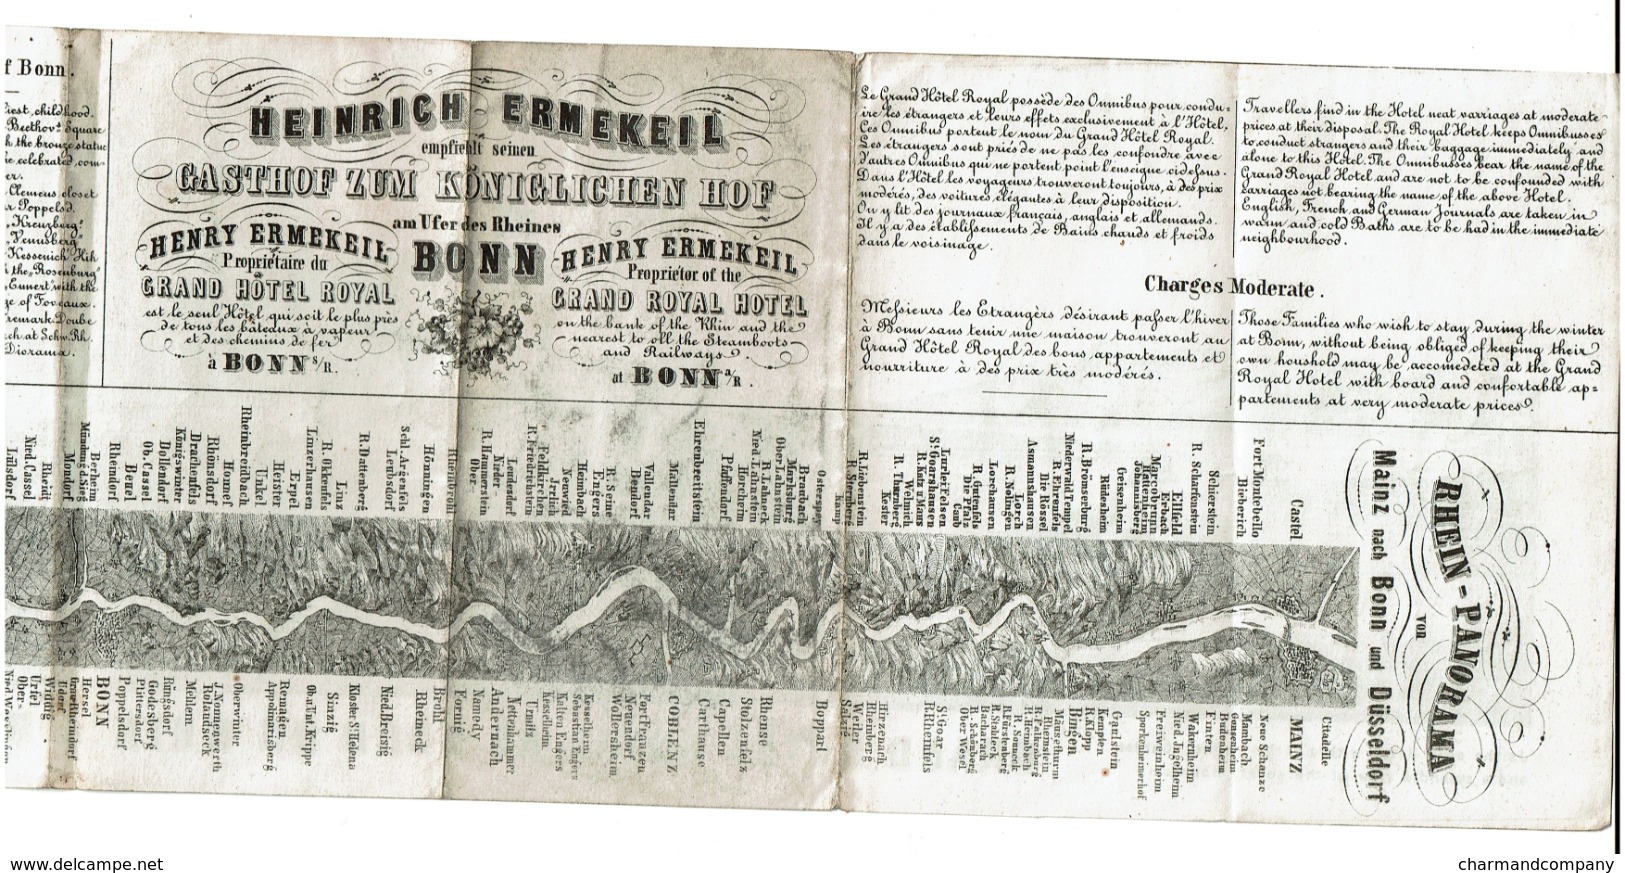 f Bonn.
childhood.
Beethov.s Square
h the bronze statue
ie celebrated com-
er.
Clemens closet
r Poppelsd.
"Kreuzberg"
"Venusberg
Kessenich Hih
h the "Rosenburg"
"Ennert" with the
ge of Foveaux.
Doube
ch at Schw. Rh.
Diorama.
HEINRICH ERMEKEIL
empfiehlt seinen
GASTHOF ZUM KÖNIGLICHEN HOF
am Ufer des Rheines
BONN
HENRY ERMEKEIL
Propriétaire du
GRAND HÔTEL ROYAL
est le seul Hôtel qui soit le plus près
de tous les bâteaux à vapeur
et des chemins de fer
à BONN s/R.
HENRY ERMEKEIL
Propriétor of the
GRAND ROYAL HOTEL
on the bank of the Rhin and the
nearest to oll the Steamboots
and Railways
at BONN a/R.
Le Grand Hôtel Royal possède des Omnibus pour condu-
ire les étrangers et leurs effets exclusivement à l'Hôtel.
Ces Omnibus portent le nom du Grand Hôtel Royal.
Les étrangers sont priés de ne pas les confondre avec
d'autres Omnibus qui ne portent point l'enseigne cidessus.
Dans l'Hôtel les voyageurs trouveront toujours, à des prix
modérés, des voitures élégantes à leur disposition.
On y lit des journaux français, anglais et allemands.
Il y a des établissements de Bains chauds et froids
dans le voisinage.
Travellers find in the Hotel neat varriages at moderate
prices at their disposal. The Royal Hotel keeps Omnibusses
to conduct strangers and their baggage immediately and
alone to this Hotel. The Omnibusses bear the name of the
Grand Royal Hotel and are not to be confounded with
carriages not bearing the name of the above Hotel.
English, French and German Journals are taken in
warm and cold Baths are to be had in the immediate
neighbourhood.
Charges Moderate.
Messieurs les Etrangèrs désirant passer l'hiver
à Bonn sans tenir une maison trouveront au
Grand Hôtel Royal des bons appartements et
nourriture à des prix très modérés.
Those Families who wish to stay during the winter
at Bonn, without being obliged of keeping their
own houshold may be accomedeted at the Grand
Royal Hotel with board and confortable ap=
partements at very moderate prices.
RHEIN-PANORAMA
von
Mainz nach Bonn und Düsseldorf
Lülsdorf
Nied. Cassel
Rheidt
Mondorf
Mündung der Sieg
Bergheim
Rheindorf
Beuel
Ob. Cassel
Dollendorf
Königswinter
Drachenfels
Rhönsdorf
Honnef
Rheinbreidbach
Unkel
Heister
Erpel
Linzerhausen
R. Okkenfels
Linz
R. Dattenberg
Leubsdorf
Schl. Argenfels
Hönningen
Rheinbrohl
Ober-
R. Hammerstein
Nieder-
Leudesdorf
R. Friedrichstein
Feldkirchen
Irrlich
Neuwied
Heimbach
Engers
R. Seine
Bendorf
Vallendar
Mallendar
Ehrenbreitstein
Pfaffendorf
Horcheim
Nied. Lahnstein
R. Lahneck
Ober Lahnstein
Marksburg
Braubach
Osterspey
Kamp
R. Sternberg
R. Liebenstein
Kester
R. Thurnberg
Welmich
R. Katz u. Maus
St. Goarshausen
Lurlei Felsen
Die Pfalz
Caub
R. Gutenfels
Lorchausen
R. Nollingen
Lorch
Asmannshausen
Die Rössel
R. Ehrenfels
Niederwald Tempel
R. Brömseburg
Rüdesheim
Geisenheim
Johannisberg
Hattenheim
Marcobrunn
Erbach
Ellfeld
R. Scharfenstein
Schierstein
Bieberich
Fort Montebello
Castel
Nied. Wesslingen
Ober-
Urfel
Widdig
Udorf
GrauRheindorf
Hersel
BONN
Poppelsdorf
Plittersdorf
Godesberg
Rüngsdorf
Mehlem
Rolandseck
J. Nonnenwerth
Oberwinter
Appolinarisberg
Remagen
Ob. u. Unt. Krippe
Sinzig
Kloster St. Helena
Nied. Breisig
Rheineck
Brohl
Fornig
Namedy
Andernach
Nettenhammer
Urmitz
Kesselheim
Kalten Engers
Sebastian Engers
Kesselheim
Wollersheim
Neuendorf
Fort Franzeu
COBLENZ
Carthause
Capellen
Stolzenfelz
Rhense
Boppart
Salzig
Weiler
Rheinberg
Hirzenach
R. Rheinfels
St. Goar
Ober Wesel
R. Schönberg
Bacharach
R. Stahleck
R. Fürstenberg
R. Sonneck
R. Heimbach
R. Falkenburg
Rheinstein
Mäusethurm
Bingen
R. Klopp
Kemplen
Gaulstein
Sporkenheimerhof
Freiweinheim
Nied. Ingelheim
Wakernheim
Finten
Budenheim
Gonsenheim
Mambach
Neue Schanze
MAINZ
Citadelle
www.delcampe.net
charmandcompany